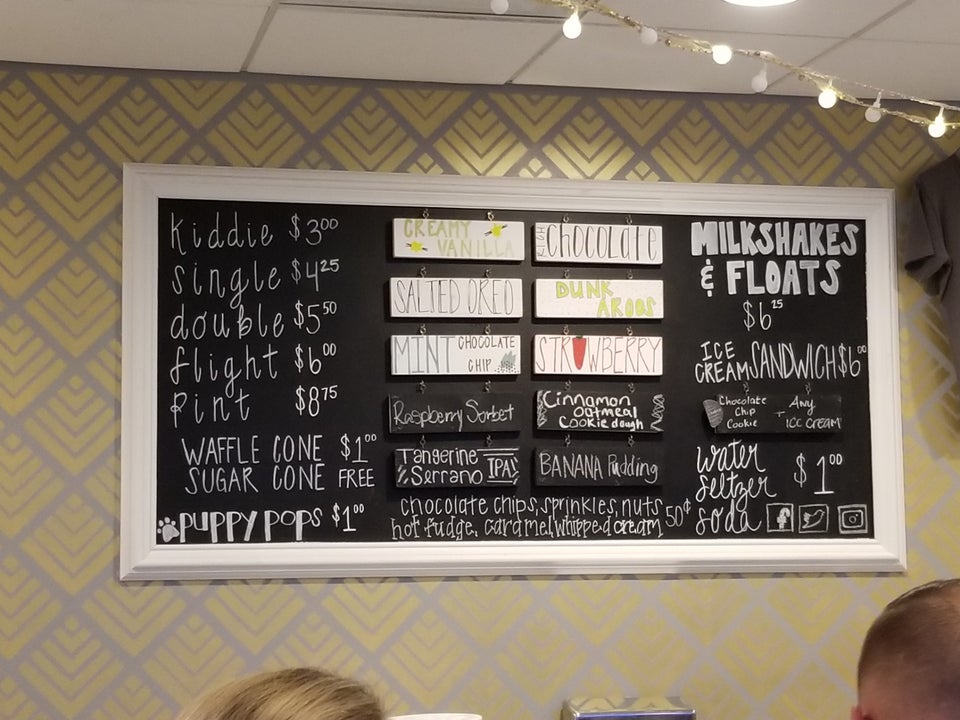 kiddie $3.00
single $4.25
double $5.50
flight $6.00
pint $8.75
WAFFLE CONE $1.00
SUGAR CONE FREE
PUPPY POPS $1.00
CREAMY VANILLA
RICH chocolate
SALTED OREO
DUNK AROOS
MINT CHOCOLATE CHIP
STRAWBERRY
Raspberry Sorbet
Cinnamon Oatmeal Cookie dough
Tangerine Serrano IPA!
BANANA Pudding
chocolate chips, sprinkles, nuts
hot fudge, caramel, whipped cream 50¢
MILKSHAKES
& FLOATS
$6.25
ICE CREAM SANDWICH $6.00
Chocolate Chip Cookie + Any ICE CREAM
water
seltzer $1.00
soda